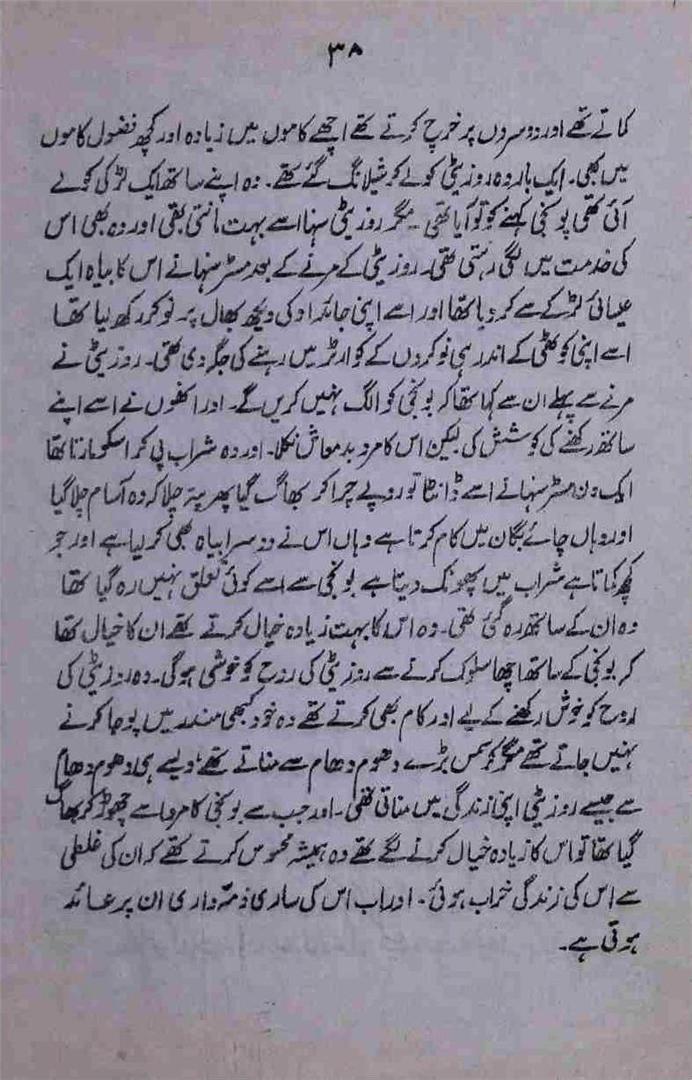 ۳۸
کماتے تھے اور دوسروں پر خرچ کرتے تھے اچھے کاموں میں زیادہ اور کچھ فضول کاموں
میں بھی۔ ایک بار وہ روزیٹی کو لے کر شیلانگ گئے تھے۔ وہ اپنے ساتھ ایک لڑکی کو لے
آئی تھی پونجی کہنے کو تو آیا تھی۔ مگر روزیٹی سنہا اسے بہت مانتی تھی اور وہ بھی اس
کی خدمت میں لگی رہتی تھی۔ روزیٹی کے مرنے کے بعد مسٹر سنہا نے اس کا بیاہ ایک
عیسائی لڑکے سے کر دیا تھا اور اسے اپنی جائداد کی دیکھ بھال پر نوکر رکھ لیا تھا
اسے اپنی کوٹھی کے اندر ہی نوکروں کے کوارٹر میں رہنے کی جگہ دی تھی۔ روزیٹی نے
مرنے سے پہلے ان سے کہا تھا کہ بونجی کو الگ نہیں کریں گے۔ اور انھوں نے اسے اپنے
ساتھ رکھنے کی کوشش کی لیکن اس کا مرد بدمعاش نکلا۔ اور وہ شراب پی کر اسکو مارتا تھا
ایک دن مسٹر سنہا نے اسے ڈانٹا تو روپے چرا کر بھاگ گیا پھر پتہ چلا کہ وہ آسام چلا گیا
اور وہاں چائے بگان میں کام کرتا ہے وہاں اس نے دوسرا بیاہ بھی کر لیا ہے اور جو
کچھ کماتا ہے شراب میں پھونک دیتا ہے بونجی سے اسے کوئی تعلق نہیں رہ گیا تھا
وہ ان کے ساتھ رہ گئی تھی۔ وہ اس کا بہت زیادہ خیال کرتے تھے ان کا خیال تھا
کہ بونجی کے ساتھ اچھا سلوک کرنے سے روزیٹی کی روح کو خوشی ہوگی۔ وہ روزیٹی کی
روح کو خوش رکھنے کے لیے اور کام بھی کرتے تھے وہ خود کبھی مندر میں پوجا کرنے
نہیں جاتے تھے مگر کرسمس بڑے دھوم دھام سے مناتے تھے، ویسے ہی دھوم دھام
سے جیسے روزیٹی اپنی زندگی میں مناتی تھی۔ اور جب سے بونجی کا مرد اسے چھوڑ کر بھاگ
گیا تھا تو اس کا زیادہ خیال کرنے لگے تھے وہ ہمیشہ محسوس کرتے تھے کہ ان کی غلطی
سے اس کی زندگی خراب ہوئی۔ اور اب اس کی ساری ذمہ داری ان پر عائد
ہوتی ہے۔